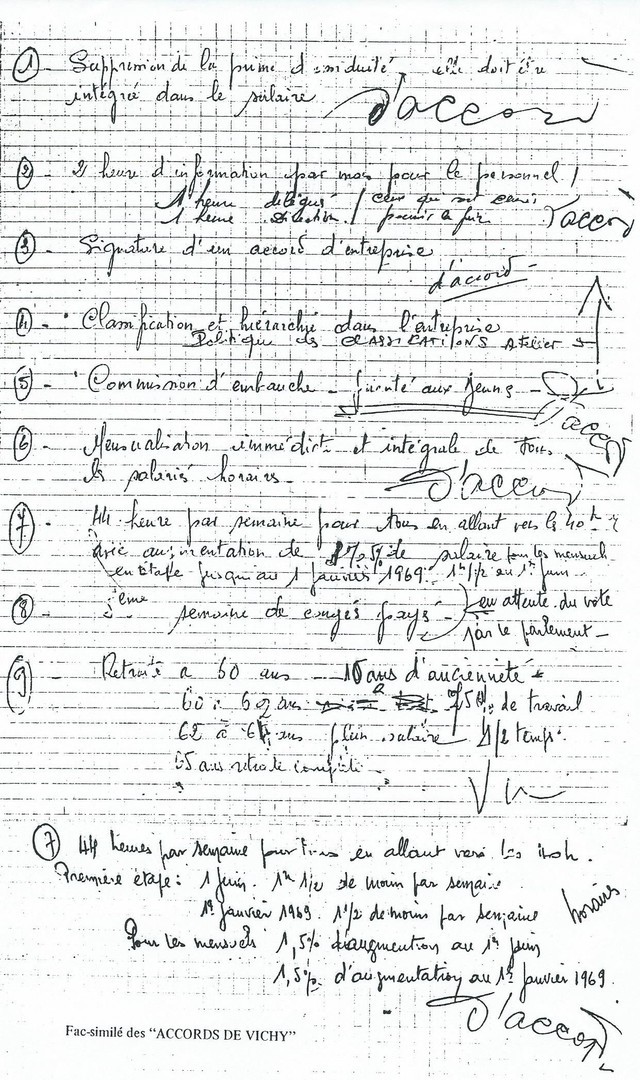 1 - Suppression de la prime d'assiduité, elle doit être
intégrée dans le salaire d'accord
2 - 2 heure d'information par mois pour le personnel /
1 heure délégué / ceux qui
1 heure direction / d'accord
3 - Signature d'un accord d'entreprise
d'accord -
4 - Classification et hiérarchie dans l'entreprise
Politique des CLASSIFICATIONS Atelier
5 - Commission d'embauche - priorité aux jeunes -
d'accord
6 - Mensualisation immédiate et intégrale de tous
les salariés horaires - d'accord
7 - 44 heure par semaine pour tous en allant vers les 40h
avec augmentation de salaire pour les mensuels
en étape jusqu'au 1 Janvier 1969. 1h 1/2 au 1er Juin
8 - ème semaine de congés payés - en attente du vote
par le parlement -
9 - Retraite a 60 ans - 10 ans d'ancienneté
60 à 62 ans de travail
62 à ans plein salaire 1/2 temps.
65 ans retraite complète -
Vu
7 44 heures par semaine pour tous en allant vers les 40h.
Première étape : 1 Juin. 1h 1/2 de moin par semaine
1er Janvier 1969. 1h/2 de moin par semaine horaires
Pour les mensuels 1,5% d'augmention au 1er Juin
1,5% d'augmentation au 1er Janvier 1969.
d'accord
Fac-similé des "ACCORDS DE VICHY"